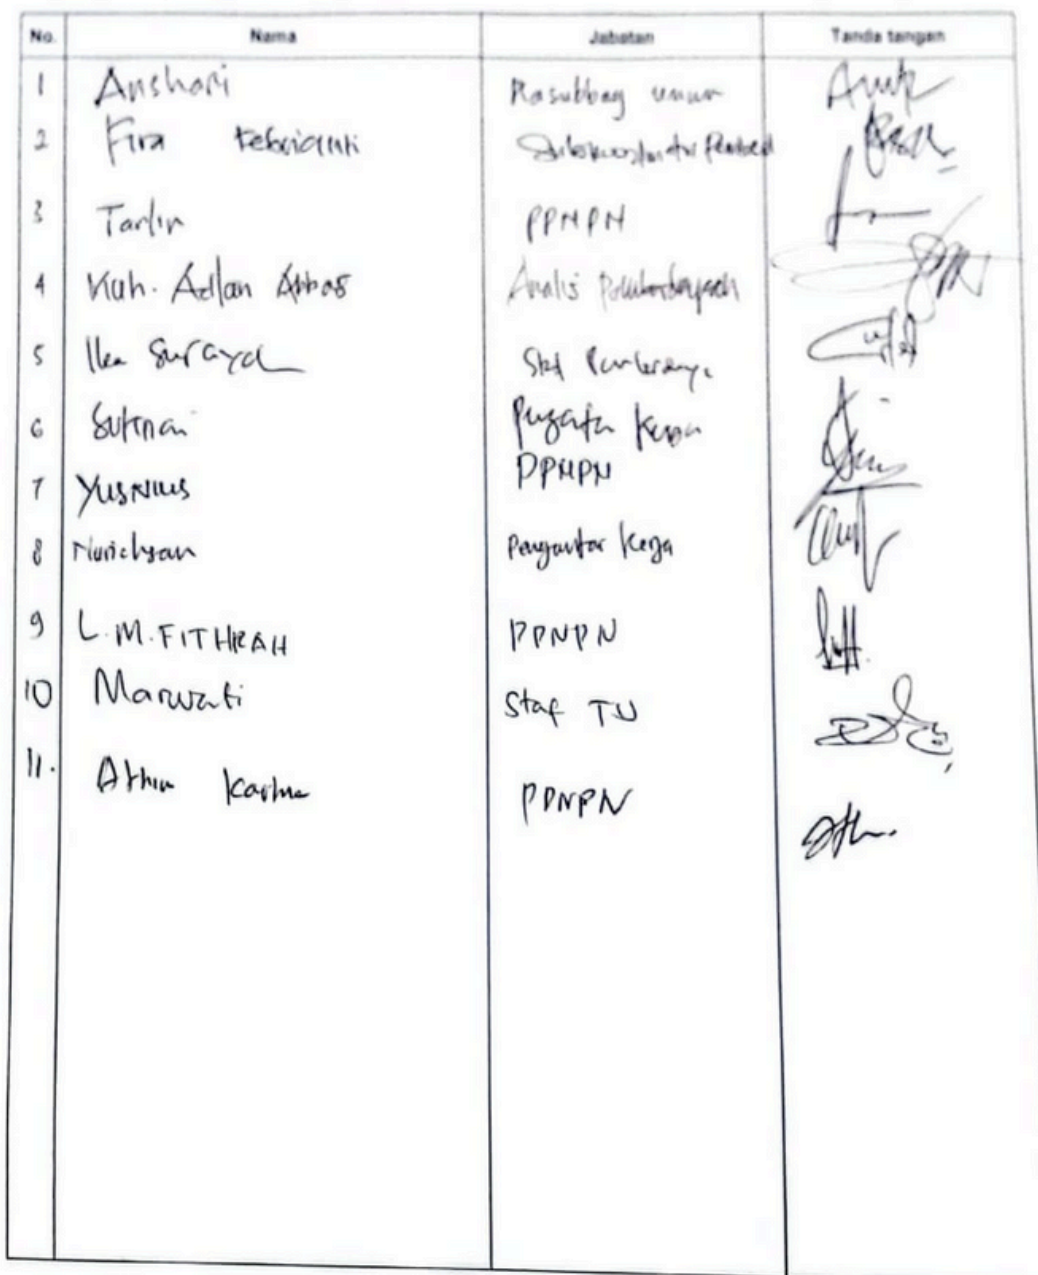 No. Nama Jabatan Tanda tangan
1 Anshari Kasubbag umum
2 Fira Febrianti
3 Tarlin PPNPN
4 Muh. Adlan Abbas Analis Pemberdayaan
5 Ika Suraya
6 Sutrnai Kerja
7 YUSNIUS PPNPN
8 Nurichsan Pengantar Kerja
9 L.M. FITHRAH PPNPN
10 Marwati Staf TU
11. PPNPN